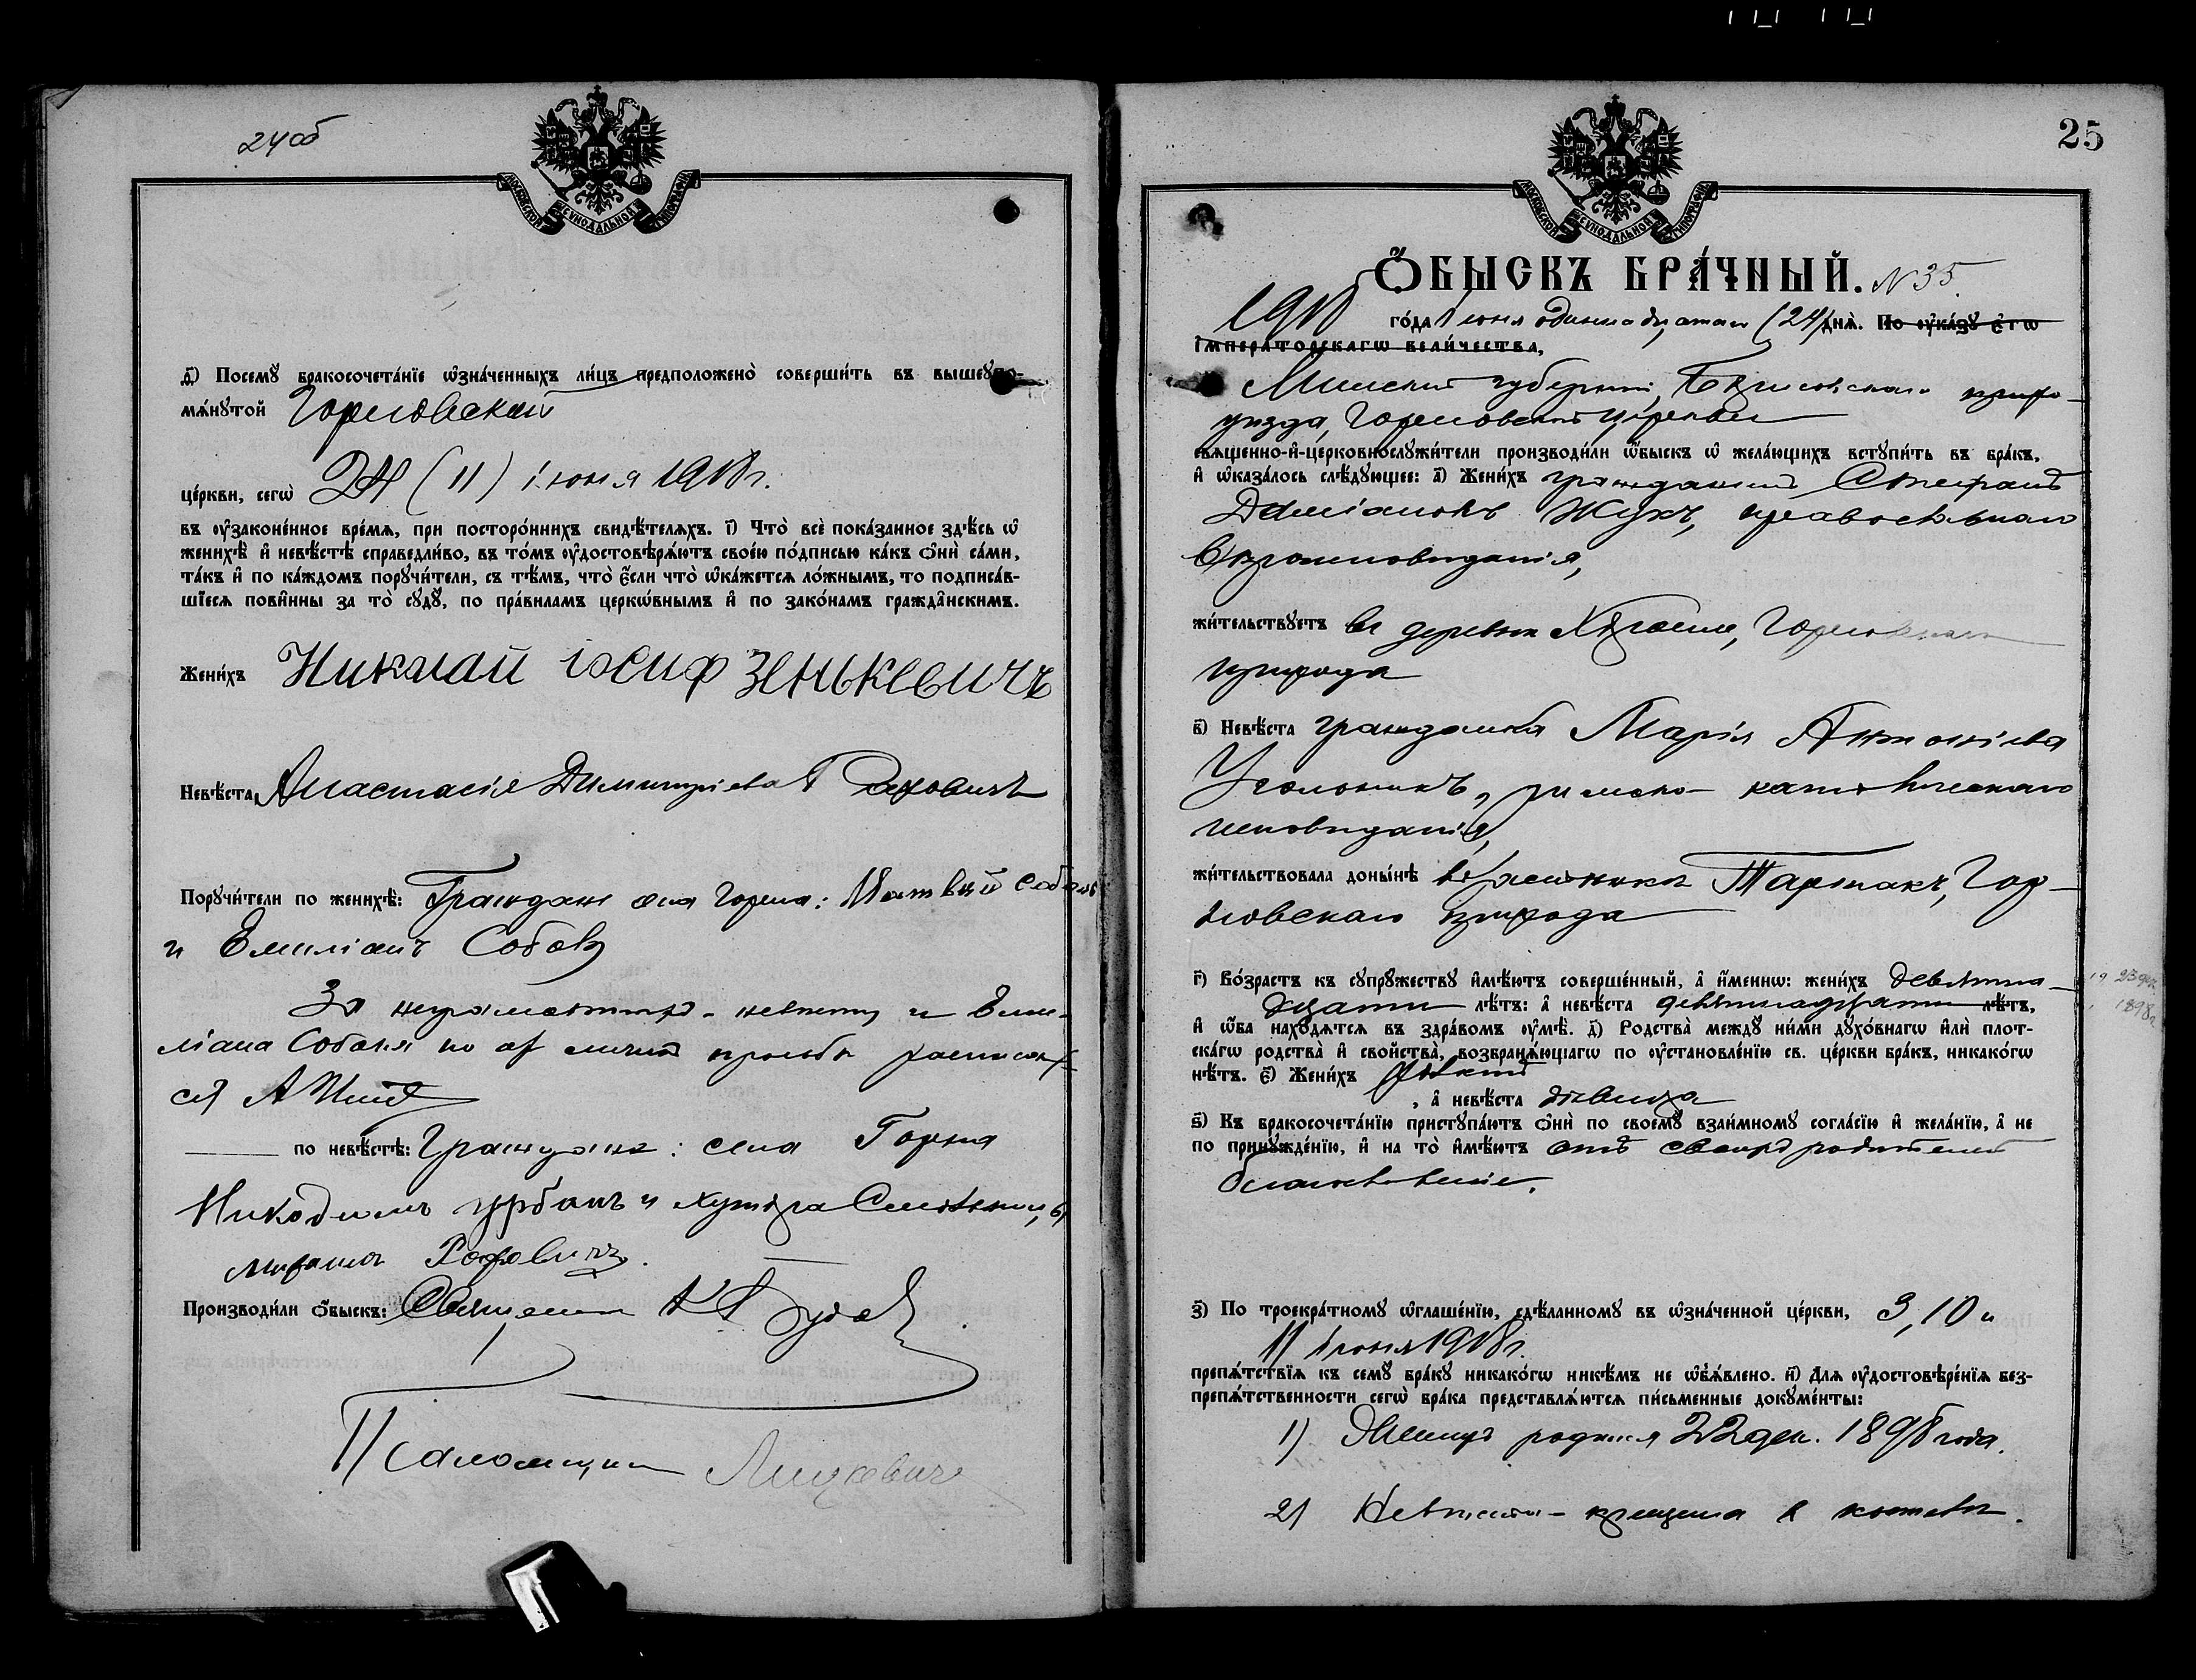 24 об
МОСКОВСКОЙ СѴНОДАЛЬНОЙ ТИПОГРАФІИ
д҃) Посемꙋ бракосочета́нїе ѡ҆зна́ченныхъ ли́цъ предположенò соверши́ть въ вышеꙋпо-
мѧ́нꙋтой Гореловской
це́ркви, сегѡ̀ 24 (11) іюня 1918 г.
въ ᲂу҆зако́нное вре́мѧ, при посторо́ннихъ свидѣ́телѧхъ. і҃) Что̀ всѐ пока́занное здѣ́сь ѡ҆
женихѣ̀ и҆ невѣ́стѣ справедли́во, въ то́мъ ᲂу҆достовѣрѧ́ютъ свое́ю по́дписью ка́къ ѻ҆нѝ са́ми,
та́къ и҆ по ка́ждомъ порꙋчи́тели, съ тѣ́мъ, что̀ є҆́сли что̀ ѡ҆ка́жетсѧ ло́жнымъ, то подписа́в-
шїесѧ пови́нны за то̀ сꙋдꙋ̀, по пра́виламъ церко́внымъ и҆ по зако́намъ гражда́нскимъ.
Жени́хъ Николай Іосиф Зенькевичъ
Невѣ́ста Анастасія Димитріева
Порꙋчи́тели по женихѣ̀: Граждане села Горелa: Матвѣй Соболь
и Емиліанъ Соболь
За неграмотныхъ - невѣсту и Еми-
ліана Соболя по их личной просьбѣ расписал-
ся А
по невѣ́стѣ: Граждане: села
Никодимъ Урбанъ и хутора
Производи́ли ѻ҆́быскъ: Священник
Псаломщик Лицкевичъ
25
МОСКОВСКОЙ СѴНОДАЛЬНОЙ ТИПОГРАФІИ
Ѻ҆́БЫСКЪ БРА́ЧНЫЙ. N 35.
1918 го́да Іюня одиннадцатаго (24) днѧ̀. По ᲂу҆ка́зꙋ є҆гѡ̀
і҆мпера́торскагѡ вели́чества,
Минской губерніи, Борисовскаго
уѣзда, Горелoвской церкви
свѧще́нно-и҆-церковнослꙋжи́тели производи́ли ѻ҆́быскъ ѡ҆ жела́ющихъ встꙋпи́ть въ бра́къ,
и҆ ѡ҆каза́лось слѣ́дꙋющее: а҃) Жени́хъ гражданинъ Стефанъ
Даміановъ Жукъ, православнаго
вѣроисповѣданія,
жи́тельствꙋетъ въ деревнѣ
прихода
в҃) Невѣ́ста гражданка Марія Антоніева
римско-католическаго
исповѣданія,
жи́тельствовала доны́нѣ въ Тартакъ, Гор-
ловскаго прихода
г҃) Во́зрастъ къ сꙋпрꙋ́жествꙋ и҆мѣ́ютъ соверше́нный, а҆ и҆́меннѡ: жени́хъ девятна-
дцати лѣ́тъ: а҆ невѣ́ста девятнадцати лѣ́тъ,
1898 г.
и҆ ѻ҆́ба нахо́дѧтсѧ въ здра́вомъ ᲂу҆мѣ̀. д҃) Родства̀ междꙋ ни́ми дꙋхо́внагѡ и҆лѝ плот-
ска́гѡ родства̀ и҆ свойства̀, возбранѧ́ющагѡ по ᲂу҆становле́нїю св. це́ркви бра́къ, никако́гѡ
нѣ́тъ. є҃) Жени́хъ
, а҆ невѣ́ста дѣвица
ѕ҃) Къ бракосочета́нїю пристꙋпа́ютъ ѻ҆нѝ по своемꙋ̀ взаи́мномꙋ согла́сїю и҆ жела́нїю, а҆ не
по принꙋжде́нїю, и҆ на то̀ и҆мѣ́ютъ отъ своихъ родителей
благословеніе.
з҃) По троекра́тномꙋ ѡ҆глаше́нїю, сдѣ́ланномꙋ въ ѡ҆зна́ченной це́ркви, 3, 10 и
11 іюня 1918 г.
препѧ́тствїѧ къ семꙋ̀ бра́кꙋ никако́гѡ никѣ́мъ не ѡ҆б̾ѧ́влено. и҃) Длѧ ᲂу҆достовѣре́нїѧ без-
препѧ́тственности сегѡ̀ бра́ка представлѧ́ютсѧ пи́сьменные докꙋме́нты:
1) Женихъ родился 22 дек. 1898 года.
2) Невѣста - крещена в костелѣ.